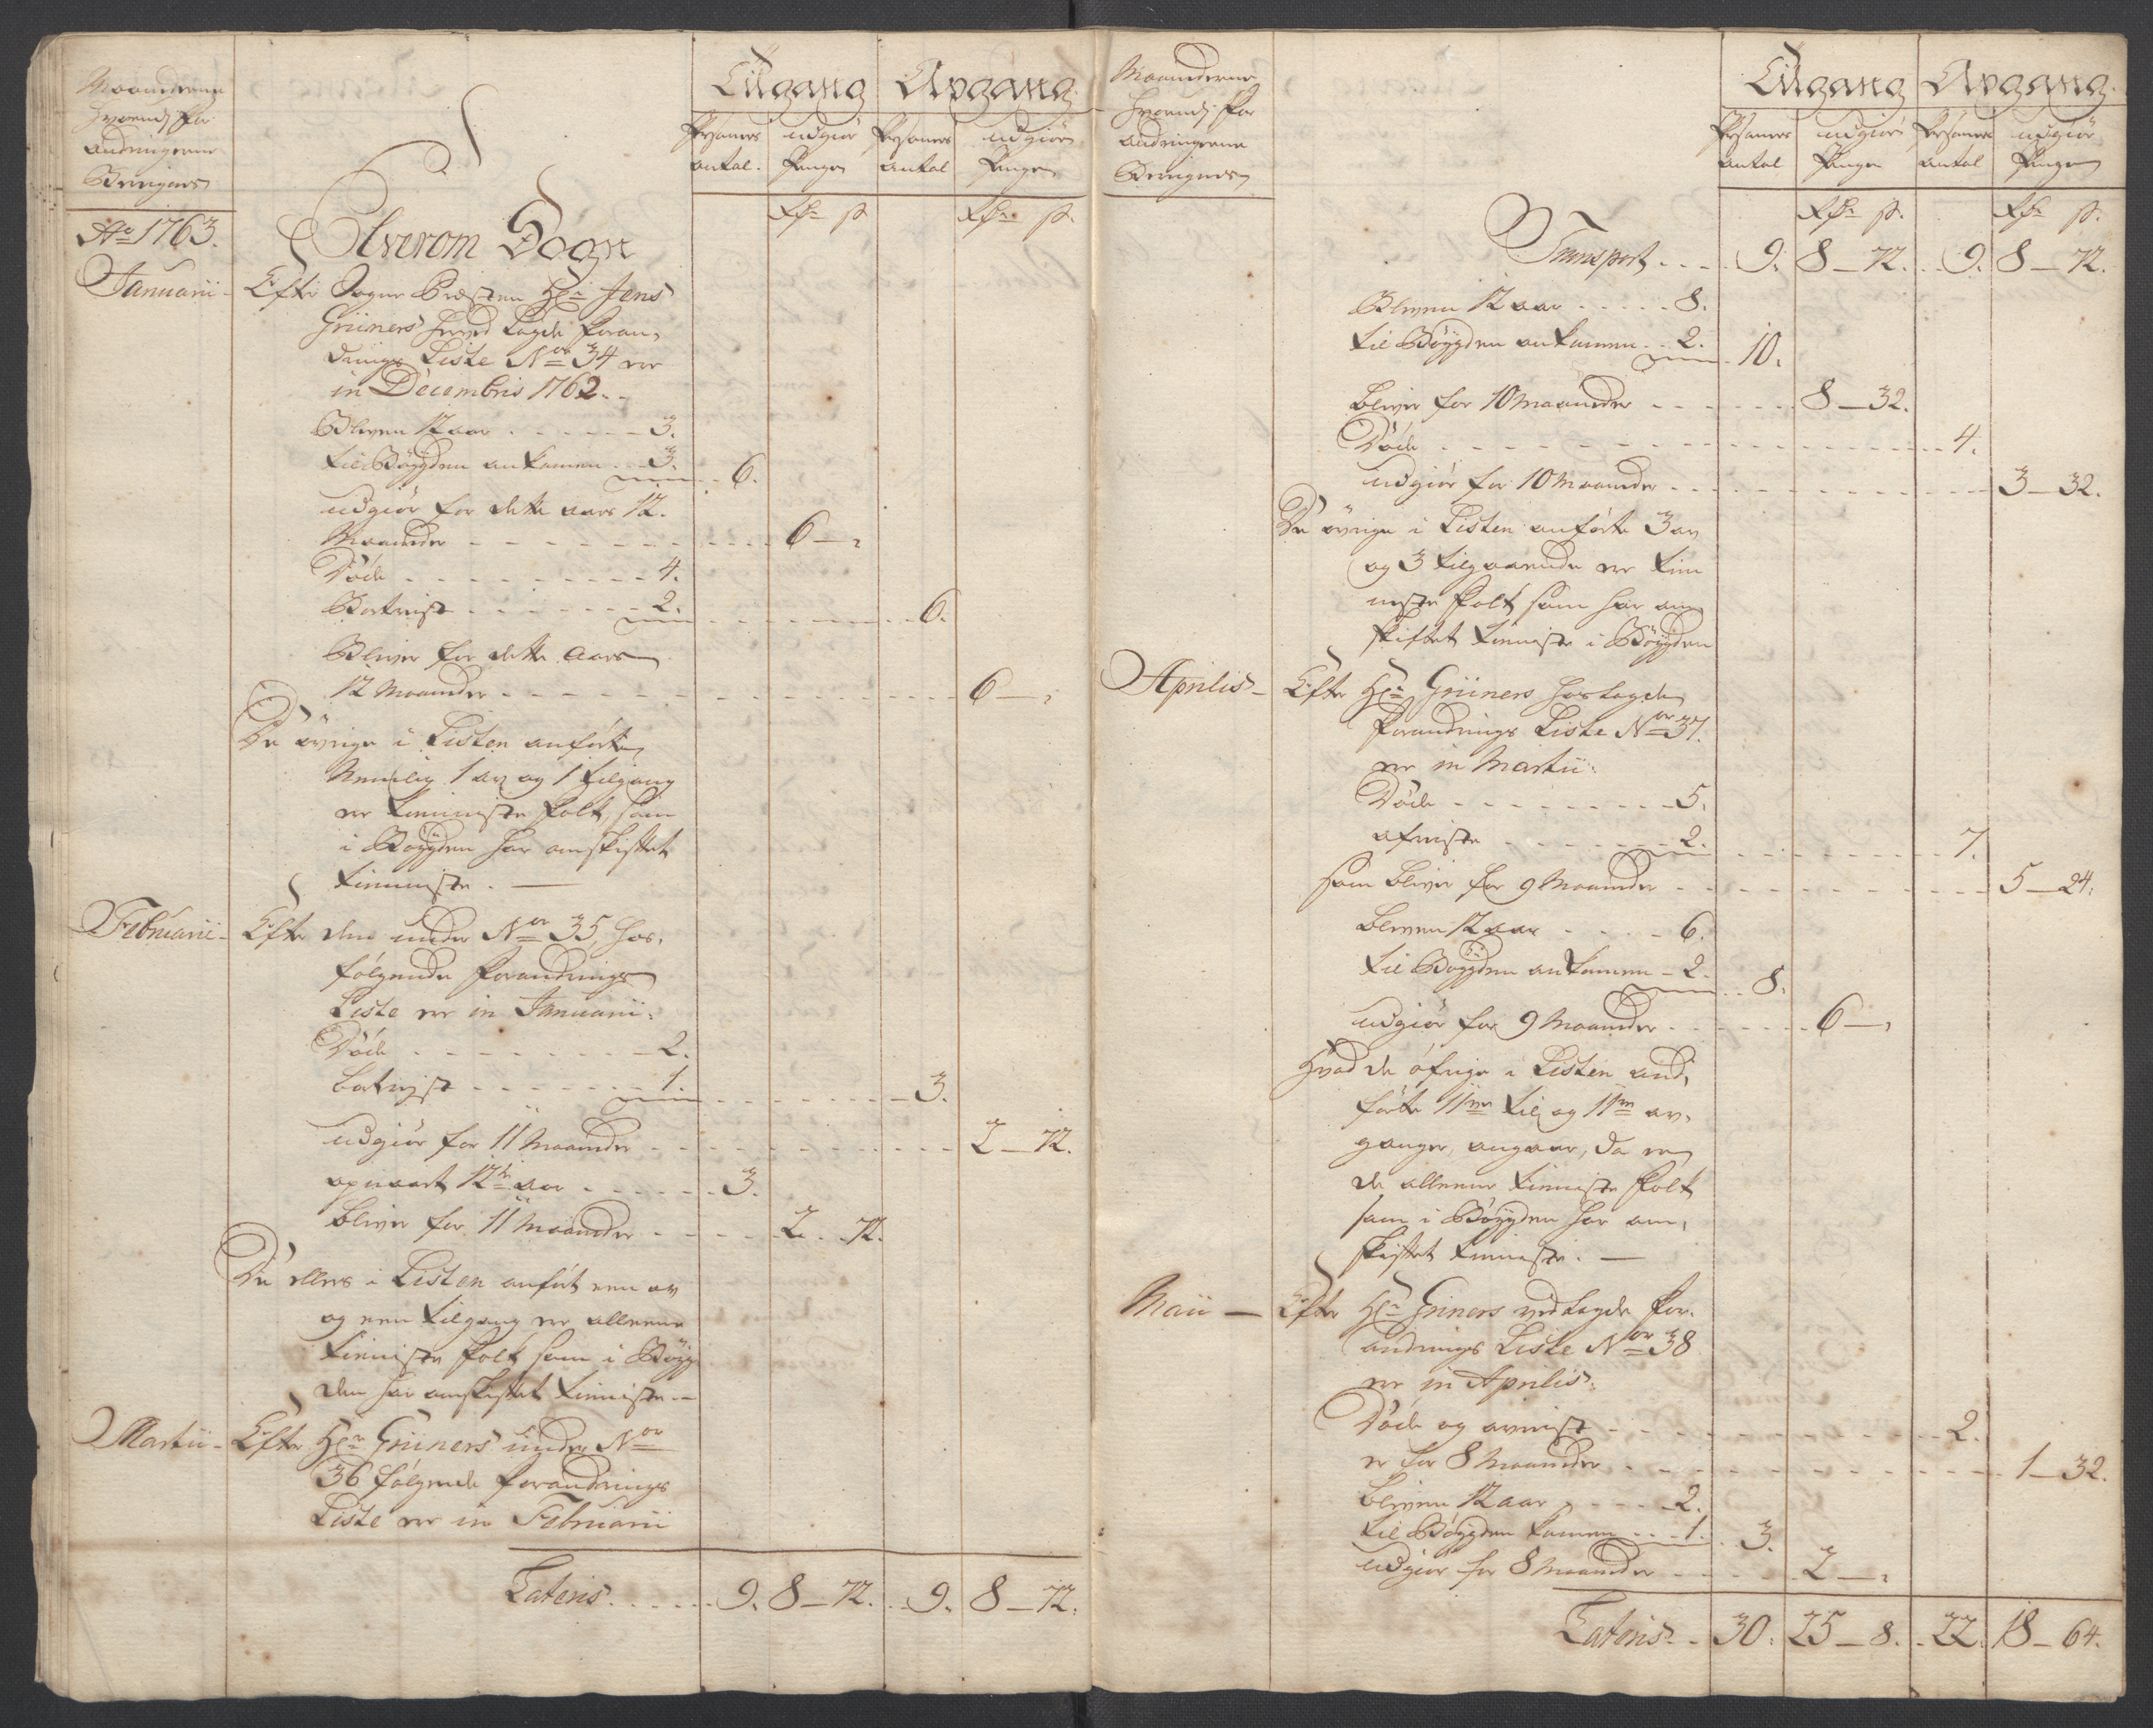 Maanederne
Hvorudj For
andringerne
Bevigers
Tilgang Avgang
Persohners udgiør Persohners udgiør
antal. Penge antal Penge
Rdr s. Rdr s.
Ao 1763.
Elverom Sogn
Januarii - Efter Sogne Præsten Hr. Jens
Grüners herved Lagde Foran,
drings Liste No. 34 er
in Decembris 1762.
Bleven 12 aar - - - - - 3.
til Bøygden ankomen - - 3. 6.
udgiør for dette aars 12.
Maaneder - - - - - - 6 —,
Døde - - - - - - - 4.
Bortreist - - - - - - 2. 6.
Bliver for dette Aars
12 Maaneder - - - - - - 6 —,
De øvrige i Listen anførte
Nemlig 1 av og 1 tilgang
er tienniste Folk, som
i Bøygden har omskiftet
tienniste. —
Februarii - Efter den under No. 35, hos,
følgende Forandrings
Liste er in Januarii:
Døde - - - - - - - 2.
bortrejst - - - - - - 1. 3.
udgiør for 11 Maaneder - - - - 2 — 72.
opvoxt 12te aar - - - - 3.
bliver for 11 Maaneder - - - - 2 - 72.
De ellers i Listen anført een av
og een tilgang er alleene
tienniste Folk som i Bøyg
den har omskiftet tienniste. —
Martii - Efter Hr. Grüners under No.
36 følgende Forandrings
Liste er in Februarii
Lateris - - - 9. 8 — 72. 9. 8 — 72.
Maanederne
Hvorudj For
andringerne
Bevignes
Tilgang Avgang.
Persohners udgiør Persohners udgiør
antal Penge antal Penge
Rdr s. Rdr s.
Transport - - - 9. 8 — 72. 9. 8 — 72.
Bleven 12 aar - - - - - 8.
til Bøygden ankomen - - 2. 10.
bliver for 10 Maaneder - - - - 8 — 32.
Døde - - - - - - - 4.
udgiør for 10 Maaneder - - - - 3 — 32.
De øvrige i Listen anførte 3 av
og 3 tilgaaende er tien
neste Folk som har om
skiftet tienniste i Bøygden
Aprilis - Efter Hr. Grüners hoslagde
Forandrings Liste No. 37.
er in Martii:
Døde - - - - - - - 5.
afreiste - - - - - - 2. 7.
som bliver for 9 Maaneder - - - - 5 — 24.
bleven 12 aar - - - - 6.
til Bøygden ankomen - 2. 8.
udgiør for 9 Maaneder - - - - 6 —,
Hvad de øfrige i Listen and,
førte 11ve til og 11ve av,
ganger, angaar, da er
de alleene tienniste Folk
som i Bøygden har om,
skiftet tienniste. —
Maii — Efter Hr. Griners vedlagde For,
andrings Liste No. 38
er in Aprilis:
Døde og avreist - - - - 2.
er for 8 Maaneder - - - - 1 — 32.
bleven 12 aar - - - - 2.
til Bøygden komen - - - 1. 3.
udgiør for 8 Maaneder - - - - 2 —,
Lateris - - 30. 25 — 8. 22. 18 — 64.